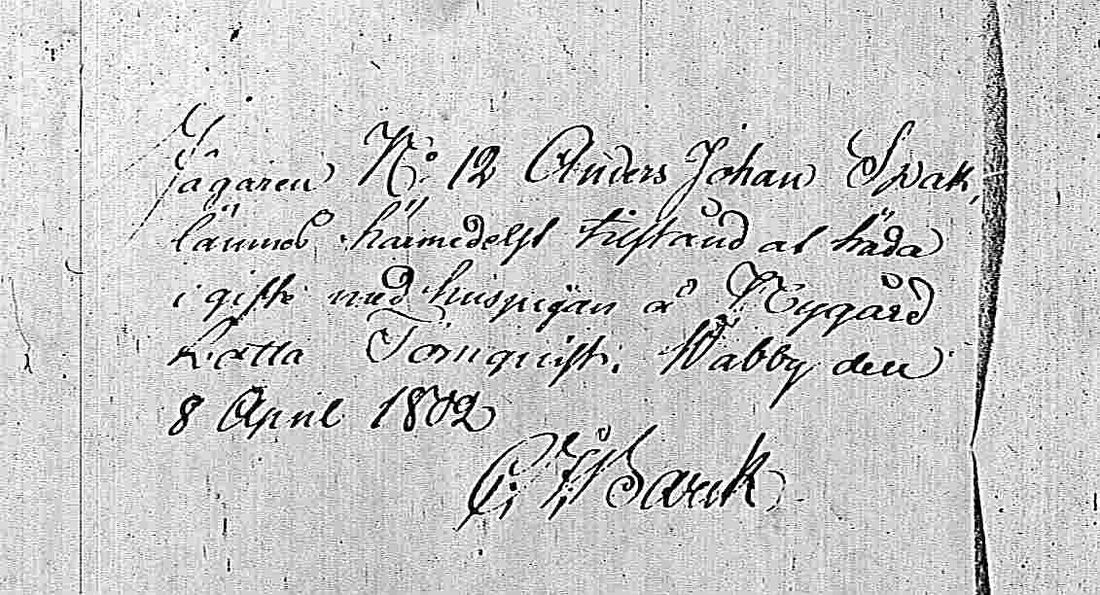 Jägaren No: 12 Anders Johan Spak,
lämnas härmedelst tilstånd at träda
i gifte med huspigan å Nygård
Lotta Törnquist. Wäbby den
8 April 1802
C. W Barck